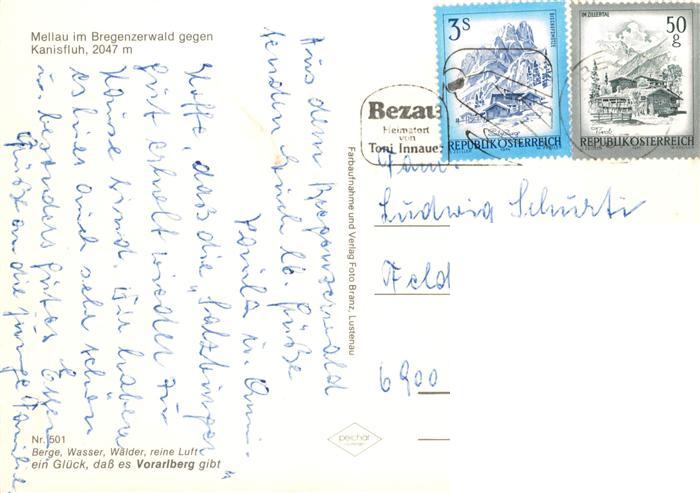 Mellau im Bregenzerwald gegen
Kanisfluh, 2047 m
Aus dem Bregenzerwald
senden Euch lb. Grüße
Paula u.
Hoffe, daß die "Salzburger"
gut erholt wieder zu
Hause sind. Wir haben
es hier auch sehr schön
u. besonders gutes Essen
Grüße an die junge Familie
Nr. 501
Berge, Wasser, Wälder, reine Luft
ein Glück, daß es Vorarlberg gibt
Farbaufnahme und Verlag Foto Branz, Lustenau
peichar
Bezau
Heimatort
von
Toni Innauer
3S
REPUBLIK ÖSTERREICH
IM ZILLERTAL
50
g
REPUBLIK ÖSTERREICH
Fam.
Ludwig Schurti
Feld
6900